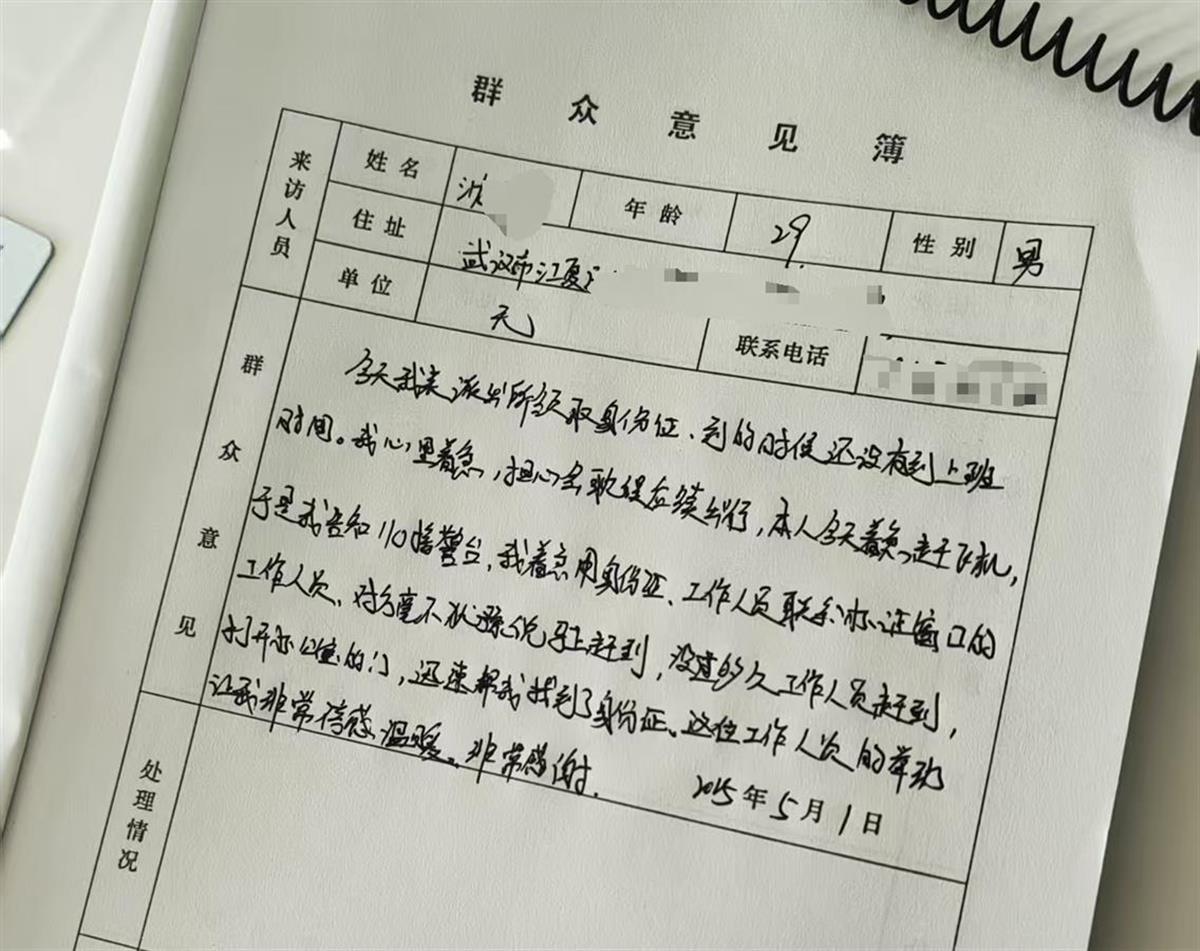 群众意见簿
来访人员 姓名 沈 年龄 29 性别 男
住址 武汉市江夏
单位 无 联系电话
群众意见
今天我来派出所领取身份证、到的时候还没有到上班
时间。我心里着急,担心会耽误后续出行,本人今天着急赶飞机,
于是我告知110接警台,我着急用身份证、工作人员联系办证窗口的
工作人员、对方毫不犹豫说马上赶到,没过多久工作人员赶到,
打开办公室的门,迅速帮我找到了身份证。这位工作人员的举动
让我非常倍感温暖。非常感谢.
2025年5月1日
处理情况